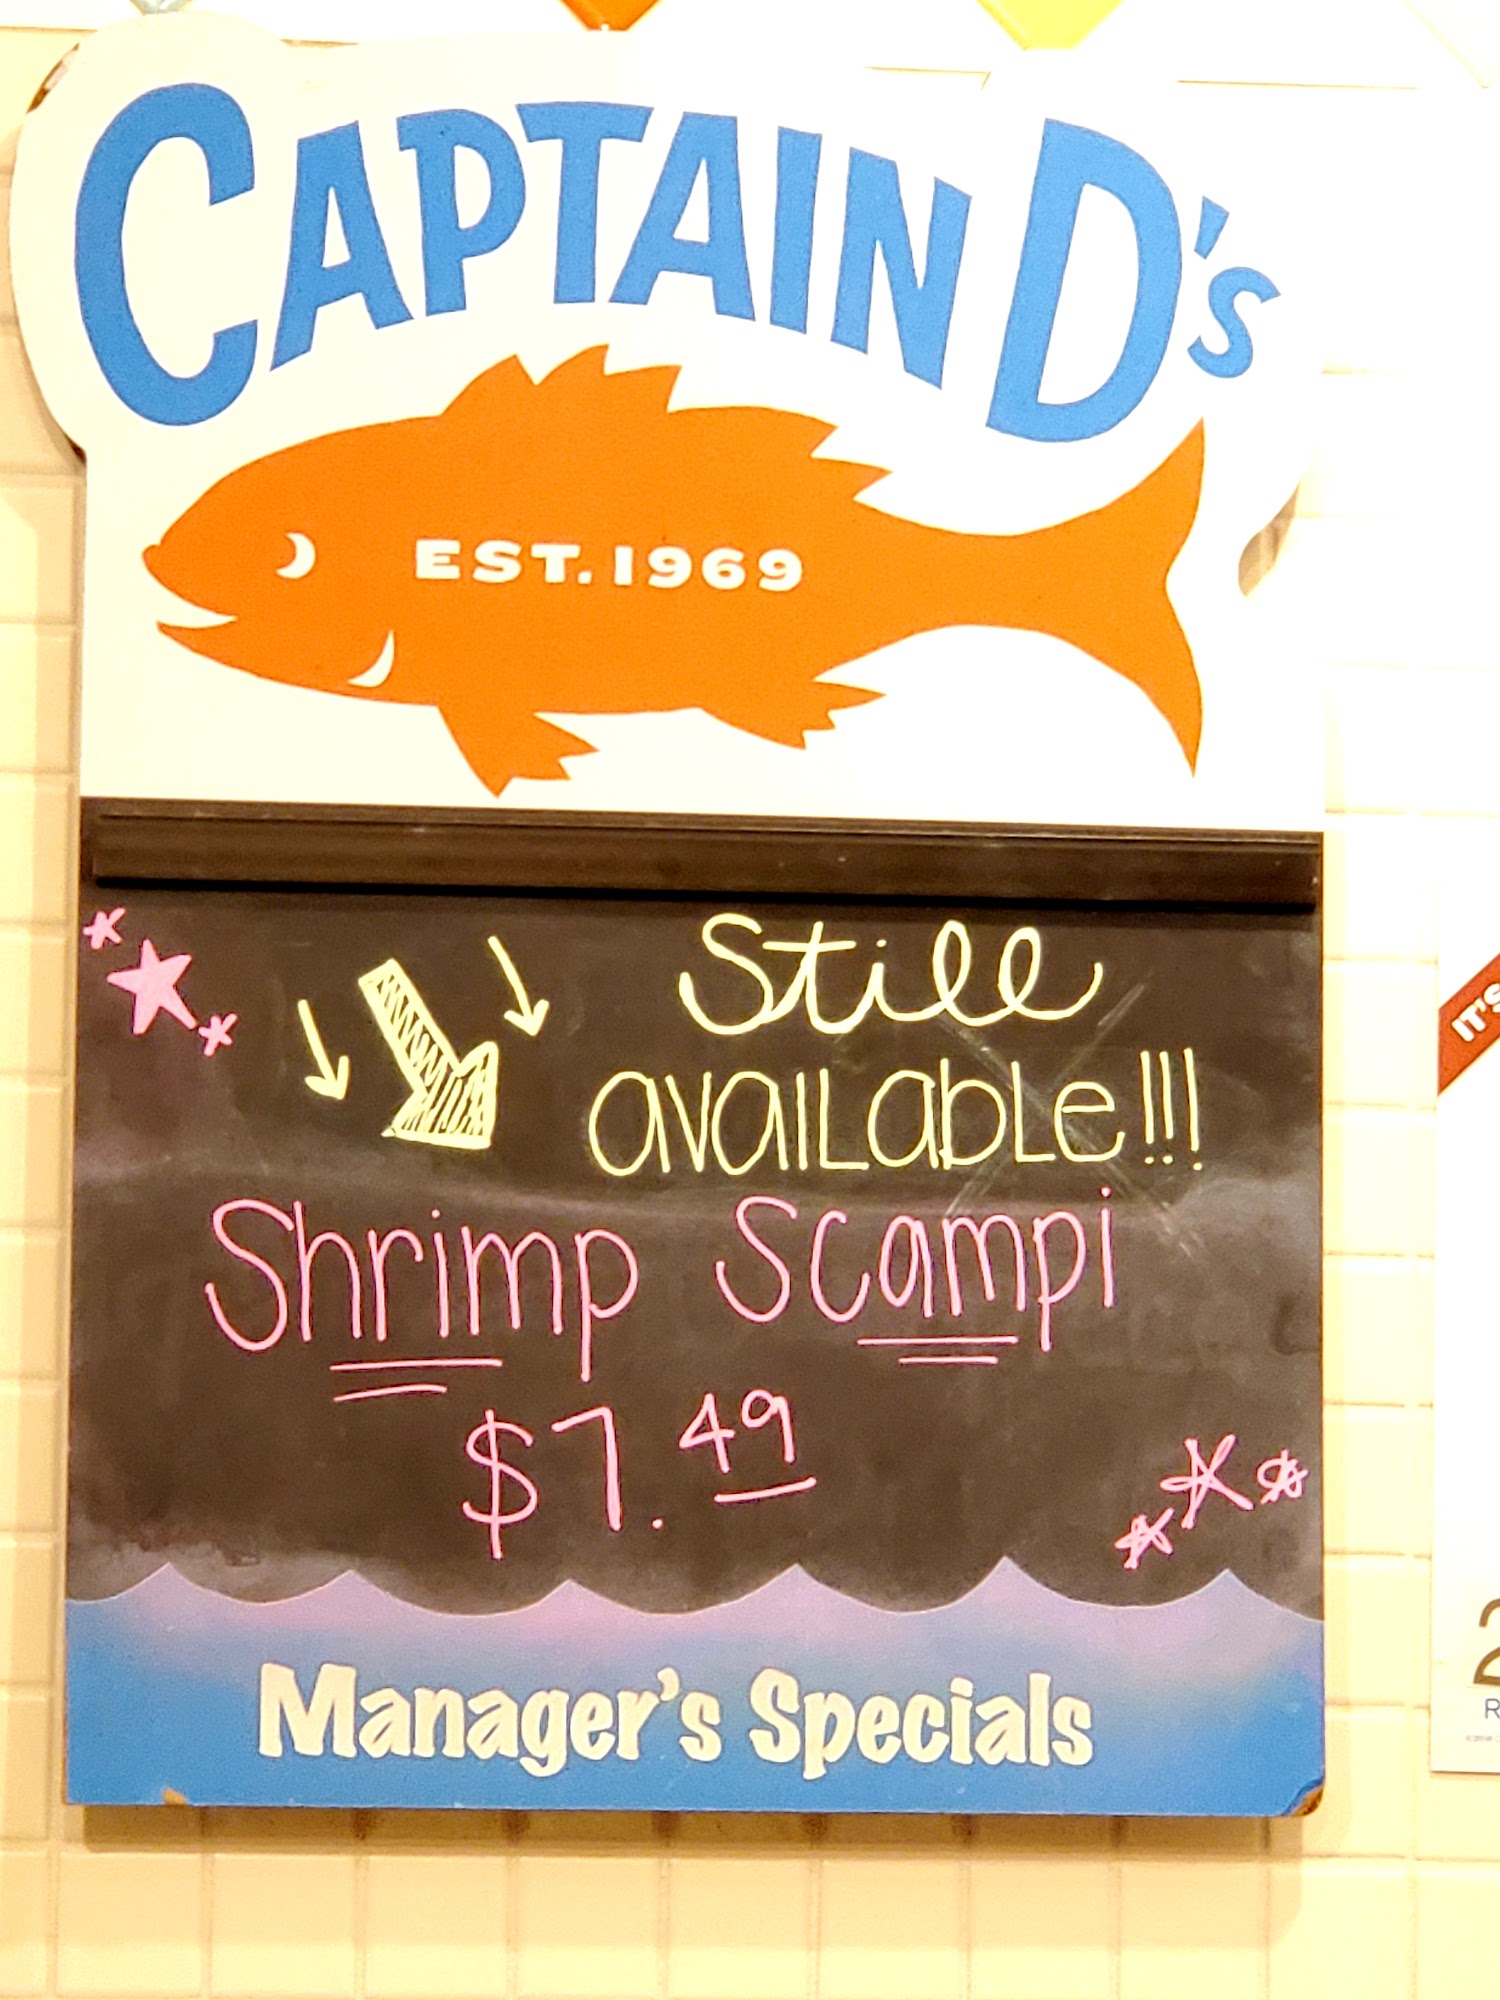 CAPTAIN D's
EST. 1969
Still
available!!!
Shrimp Scampi
$7.49
Manager's Specials
IT'S
2
R